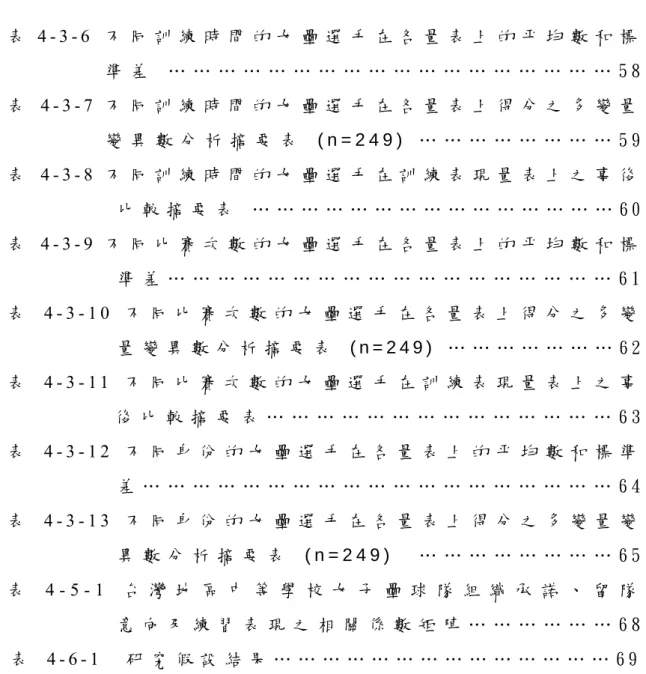 表 4-3-6 不同訓練時間的女壘選手在各量表上的平均數和標
準差 ………………………………………………58
表 4-3-7 不同訓練時間的女壘選手在各量表上得分之多變量
變異數分析摘要表 (n=249) ………………………59
表 4-3-8 不同訓練時間的女壘選手在訓練表現量表上之事後
比較摘要表 ………………………………………60
表 4-3-9 不同比賽次數的女壘選手在各量表上的平均數和標
準差………………………………………………61
表 4-3-10 不同比賽次數的女壘選手在各量表上得分之多變
量變異數分析摘要表 (n=249) ……………………62
表 4-3-11 不同比賽次數的女壘選手在訓練表現量表上之事
後比較摘要表………………………………………63
表 4-3-12 不同身份的女壘選手在各量表上的平均數和標準
差…………………………………………………64
表 4-3-13 不同身份的女壘選手在各量表上得分之多變量變
異數分析摘要表 (n=249) ………………………65
表 4-5-1 台灣地區中等學校女子壘球隊組織承諾、留隊
意向及練習表現之相關係數矩陣………………68
表 4-6-1 研究假設結果……………………………………69